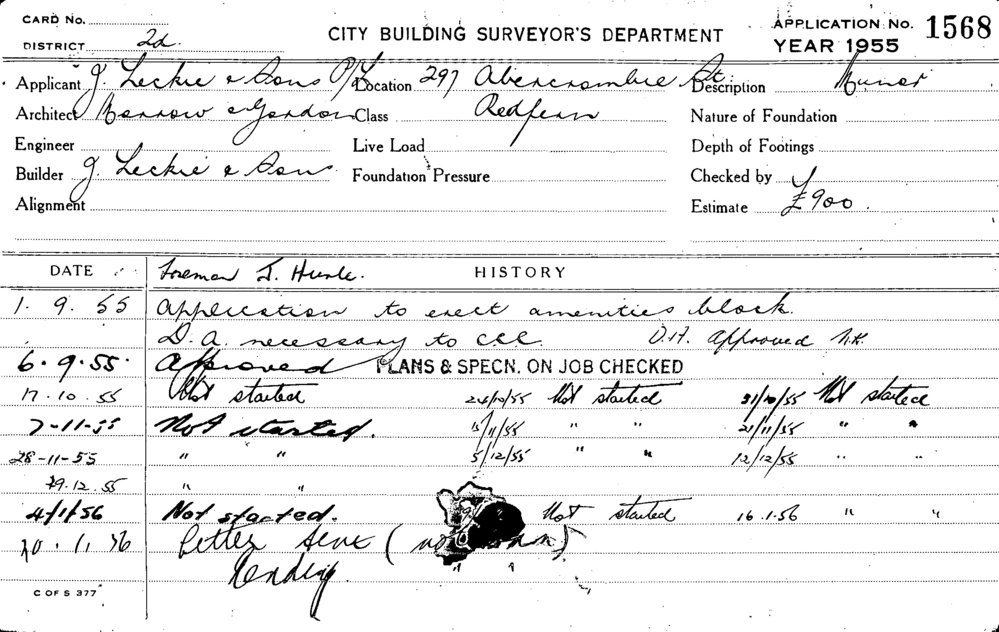 CARD No.
DISTRICT 2d.
CITY BUILDING SURVEYOR'S DEPARTMENT
APPLICATION No. 1568
YEAR 1955
Applicant J. Leckie & Sons P/L Location 297 Abercrombie St Description Minor
Architect Morrow & Gordon Class Redfern Nature of Foundation
Engineer Live Load Depth of Footings
Builder J. Leckie & Sons Foundation Pressure Checked by
Alignment Estimate £900.
DATE Foreman J. HISTORY
1. 9. 55 Application to erect amenities block.
D.A. necessary to CCC. D.H. Approved N.K.
6.9.55. Approved PLANS & SPECN. ON JOB CHECKED
17.10.55 Not started 24/10/55 Not started 31/10/55 Not started
7-11-55 Not started. 15/11/55 " " 21/11/55 " "
28-11-55 " " 5/12/55 " " 12/12/55 " "
19.12.55 " "
4/1/56 Not started. Not started 16.1.56 " "
20.1.56 Letter sent (
Pending. " "
C OF S 377